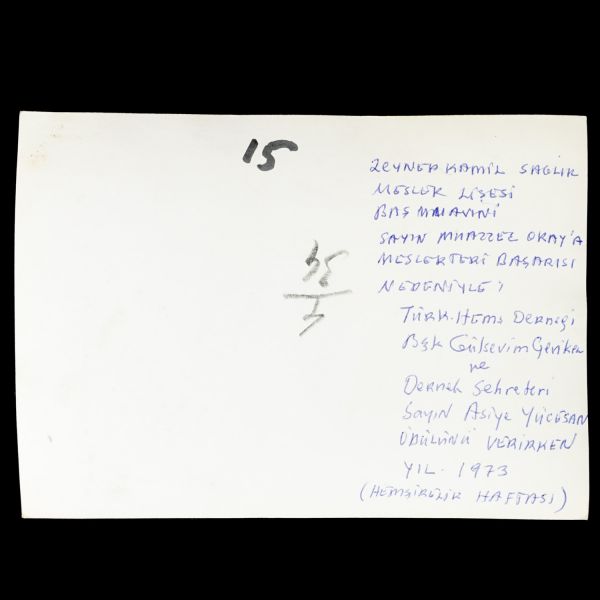 15
ZEYNEP KAMİL SAĞLIK
MESLEK LİSESİ
BAŞ MUAVİNİ
SAYIN MUAZZEZ ORAY'A
MESLEKTEKİ BAŞARISI
NEDENİYLE
TÜRK. Hemş Derneği
Bşk Gülsevim
ve
Dernek Sekreteri
Sayın Asiye YÜCESAN
ÖDÜLÜNÜ VERİRKEN
YIL. 1973
(HEMŞİRELİK HAFTASI)